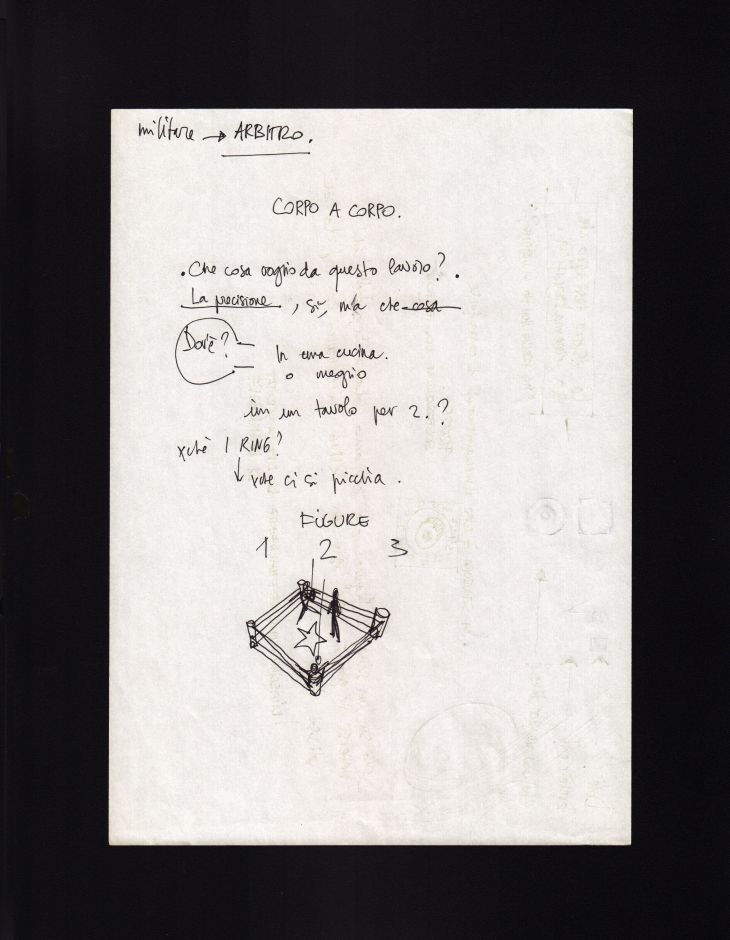 militare → ARBITRO.
CORPO A CORPO.
. Che cosa voglio da questo lavoro? .
La precisione, sì, ma che cosa
Dov'è?
In una cucina.
o meglio
in un tavolo per 2.?
xchè I RING?
↓ xchè ci si picchia.
FIGURE
1 2 3